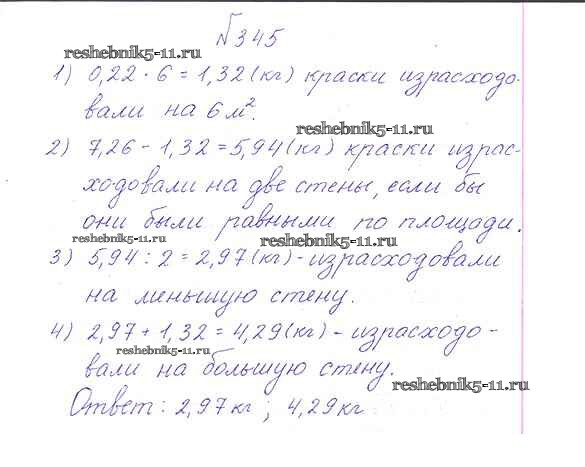 №345
reshebnik5-11.ru
1) 0,22 · 6 = 1,32 (кг) краски израсходо-
вали на 6 м².
reshebnik5-11.ru
2) 7,26 - 1,32 = 5,94 (кг) краски израс-
ходовали на две стены, если бы
они были равными по площади.
reshebnik5-11.ru reshebnik5-11.ru
3) 5,94 : 2 = 2,97 (кг) - израсходовали
на меньшую стену.
4) 2,97 + 1,32 = 4,29 (кг) - израсходо-
reshebnik5-11.ru
вали на большую стену.
reshebnik5-11.ru
Ответ: 2,97 кг ; 4,29 кг